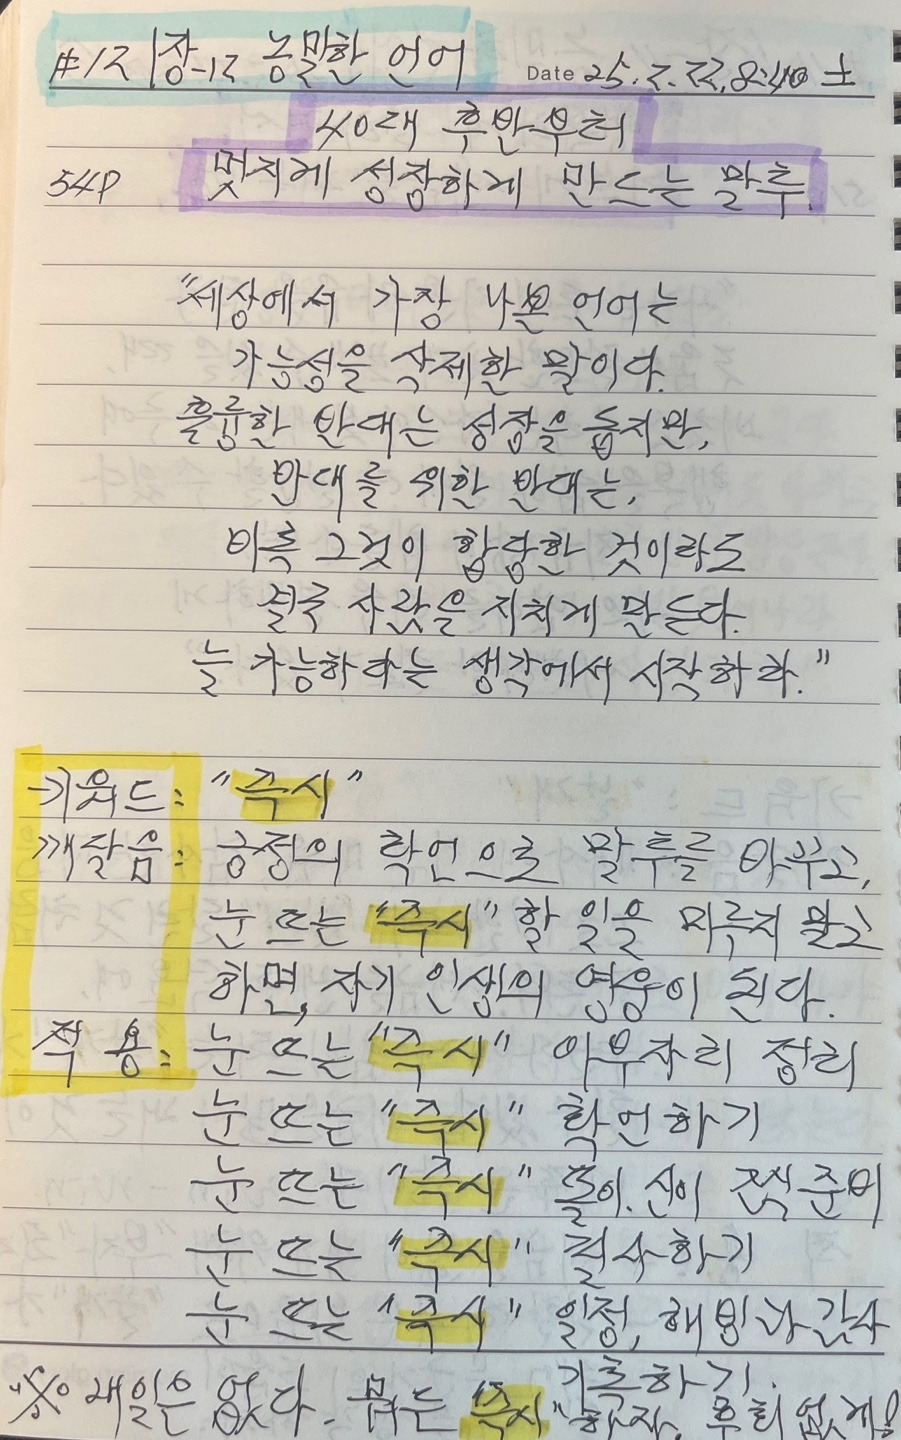 #12 1장-12 농밀한 언어 Date 25.2.22, 8:40 土
40대 후반부터
54P 멋지게 성장하게 만드는 말투.
"세상에서 가장 나쁜 언어는
가능성을 삭제한 말이다.
훌륭한 반대는 성장을 돕지만,
반대를 위한 반대는,
비록 그것이 합당한 것이라도
결국 사람을 지치게 만든다.
늘 가능하다는 생각에서 시작하라."
키워드: "즉시"
깨달음: 긍정의 확언으로 말투를 바꾸고,
눈 뜨는 "즉시" 할 일을 미루지 말고
하면, 자기 인생의 영웅이 된다.
적 용: 눈 뜨는 "즉시" 이부자리 정리
눈 뜨는 "즉시" 확언하기
눈 뜨는 "즉시" 준비
눈 뜨는 "즉시" 필사하기
눈 뜨는 "즉시" 일정, 해빙과 감사
기록하기.
※ 내일은 없다. 뭐든 "즉시" 하자. 후회 없게!